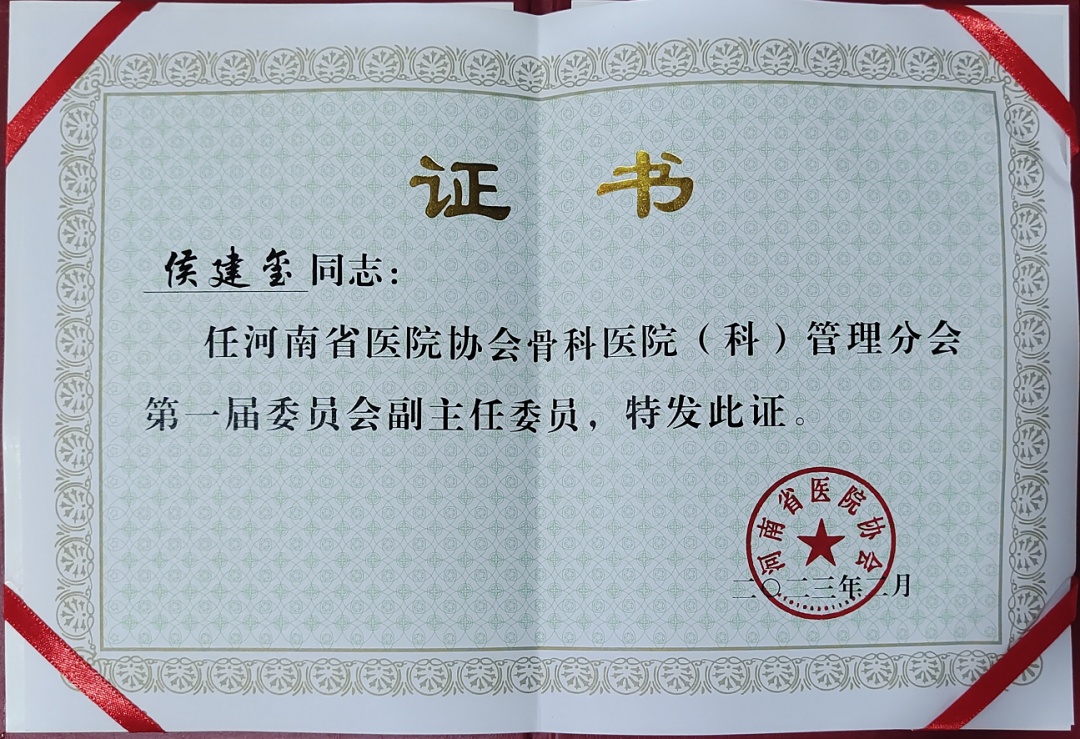 证 书
侯建玺同志：
任河南省医院协会骨科医院（科）管理分会
第一届委员会副主任委员，特发此证。
河南省医院协会
二〇二三年二月